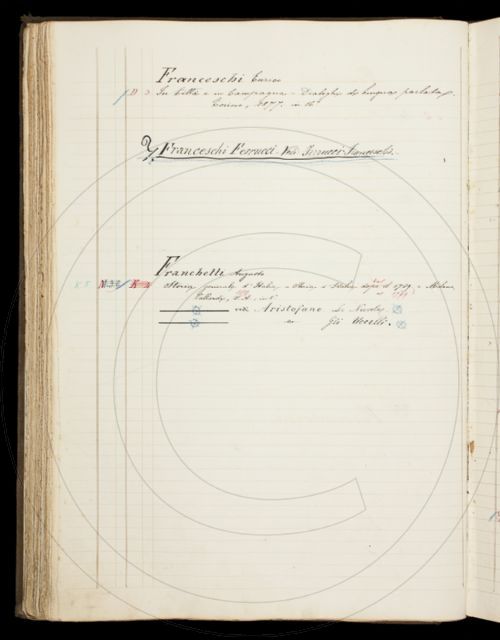 Franceschi Enrico
D 3 In Città e in Campagna - Dialoghi di lingua parlata.
Torino, 1877. in 16°
Franceschi Ferrucci. Vedi Ferrucci Franceschi.
Franchetti Augusto
Storia generale d'Italia, - Storia d'Italia dal 1789. - Milano
Vallardi, in 8°
vedi Aristofane Le Nuvole
Gli Uccelli.